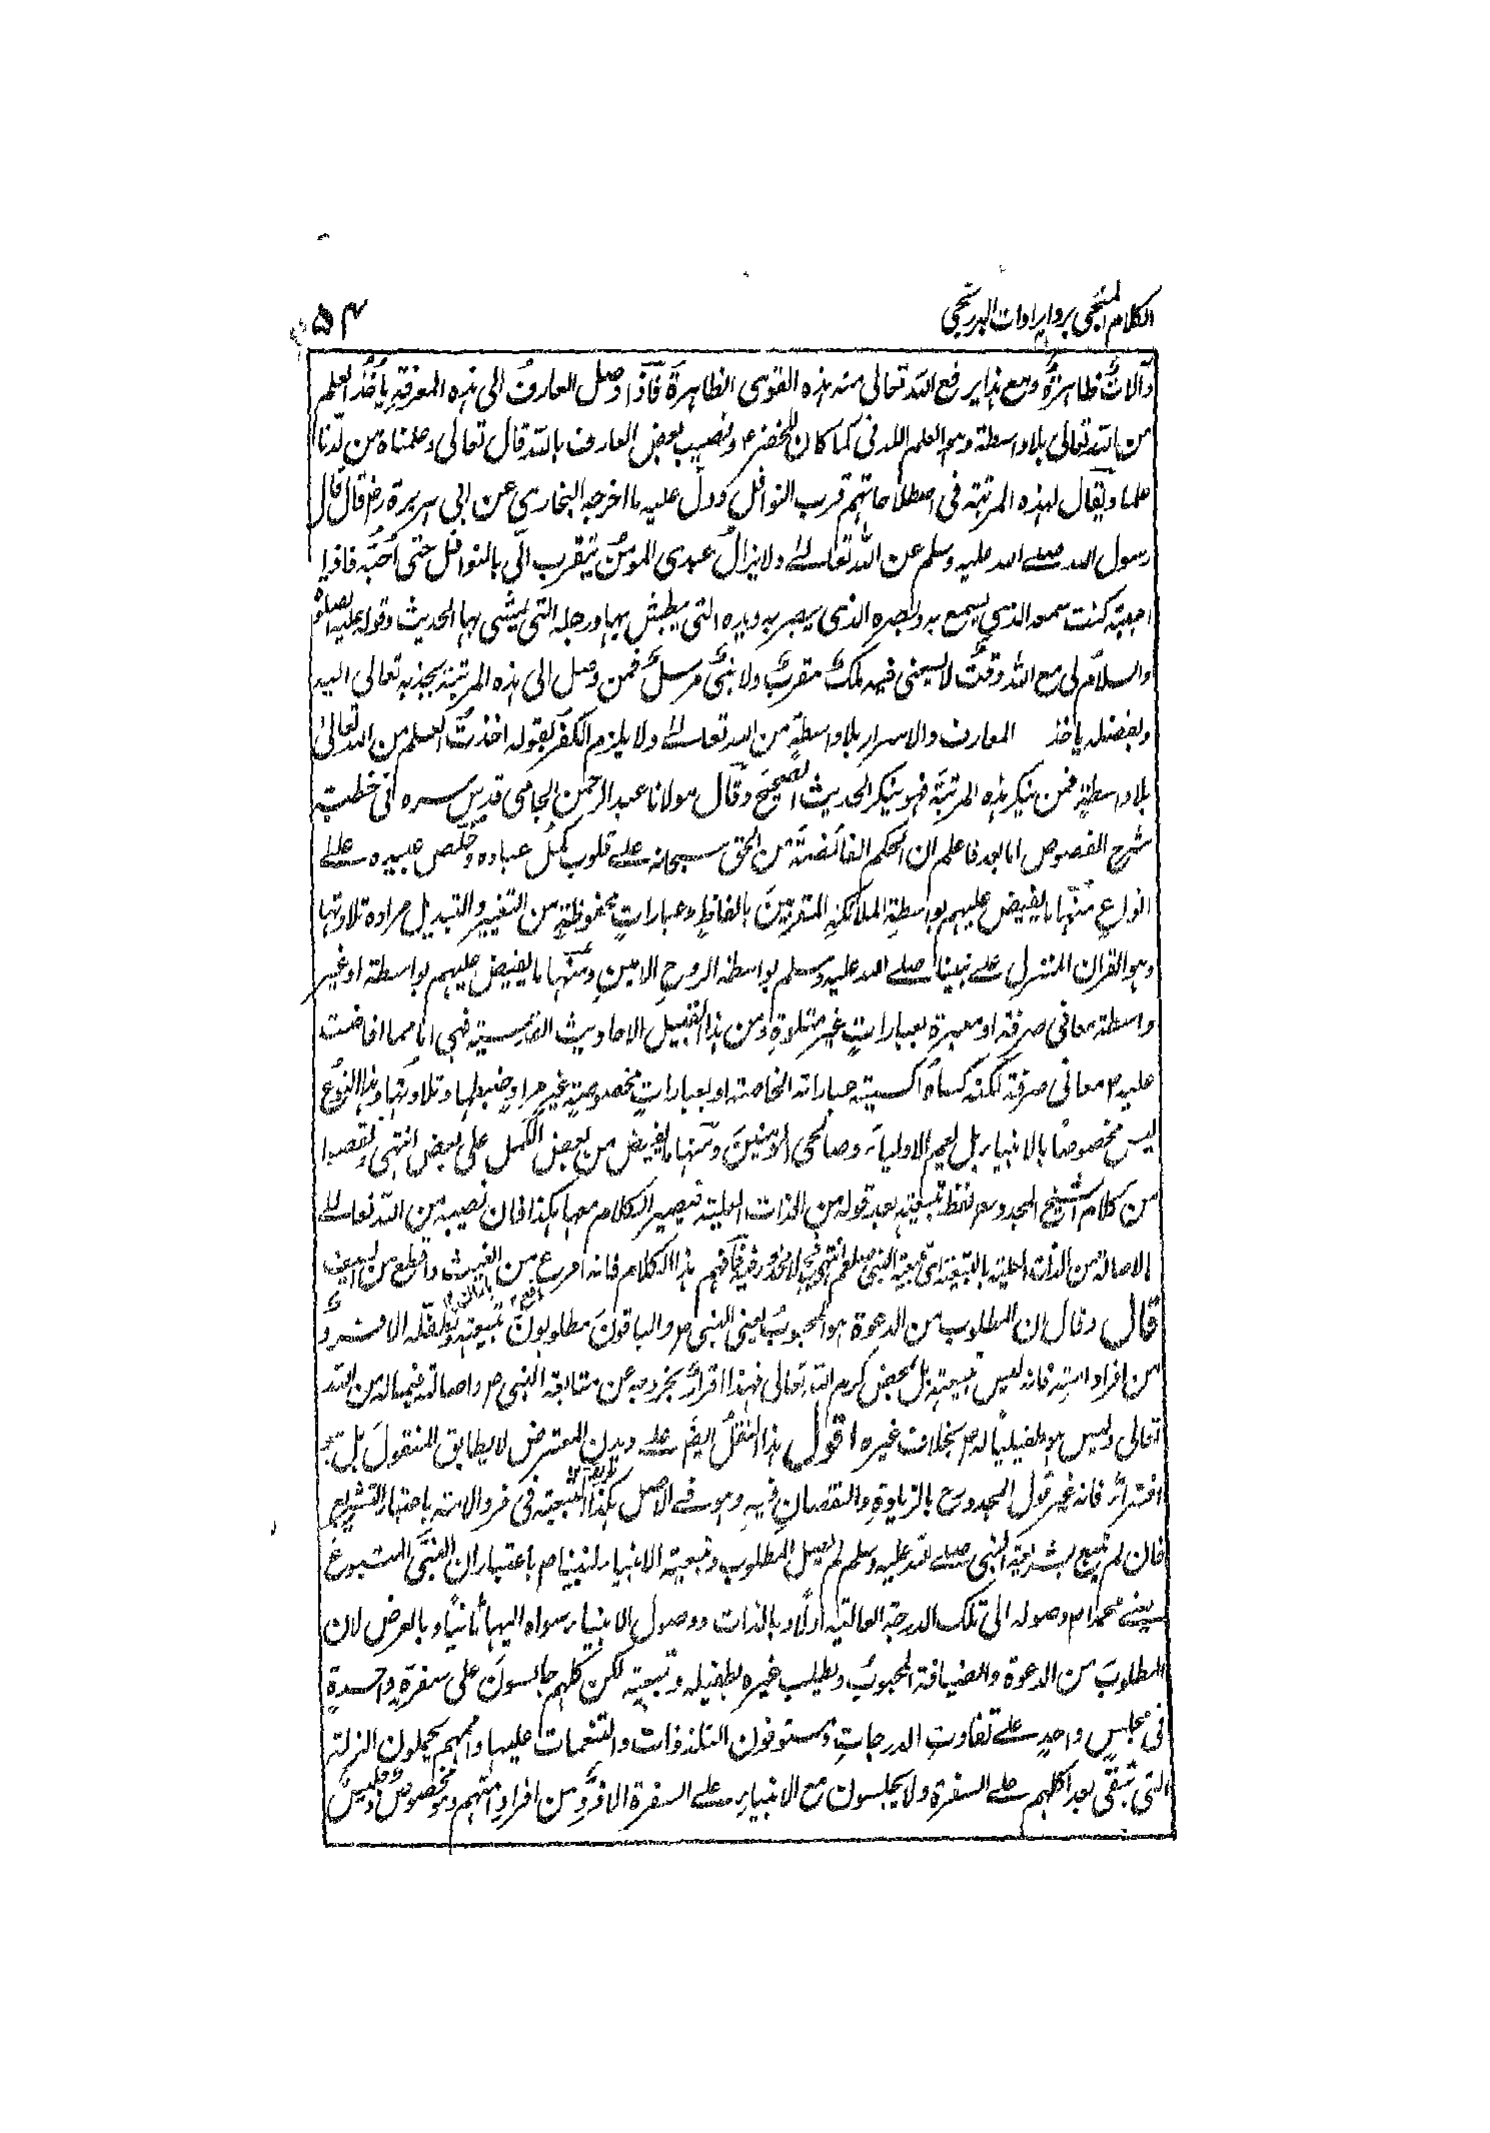 الكلام المنجى برد ايرادات البرزنجى
٥٤
وآلاتٌ ظاهرةٌ ومع هذا يرفع الله تعالى منه هذه القوى الظاهرة فاذا وصل العارفُ الى هذه المعرفة يأخذُ العلم
من الله تعالى بلا واسطة وهو العلم اللدنى كما كان للخضر ع ونصيب بعض العارف بالله قال تعالى وعلمناه من لدنا
علما ويقال لهذه المرتبة فى اصطلاحاتهم قرب النوافل ودل عليه ما اخرجه البخارى عن ابى هريرة رض قال قال
رسول الله صلى الله عليه وسلم عن الله تعالى ولا يزال عبدى المومنُ يتقرب الىّ بالنوافل حتى أُحبّه فاذا
احببته كنت سمعه الذى يسمع به وبصره الذى يبصر به ويده التى يبطش بها ورجله التى يمشى بها الحديث وقوله عليه الصلوة
والسلام لى مع الله وقتٌ لا يسعنى فيه ملكٌ مقربٌ ولا نبىٌ مرسلٌ فمن وصل الى هذه المرتبة يجذبه تعالى اليه
وبفضله ياخذ المعارف والاسرار بلا واسطةٍ من الله تعالى ولا يلزم الكفر بقوله اخذتُ العلم من الله تعالىٰ
بلا واسطةٍ فمن ينكر هذه المرتبةَ فهو ينكر الحديث الصحيح وقال مولانا عبد الرحمن الجامى قدس سره فى خطبة
شرح الفصوص اما بعد فاعلم ان الحكم الفائضة من الحق سبحانه على قلوب كمل عباده وخلص عبيده على
انواعٍ منها ما يفيض عليهم بواسطةِ الملائكةِ المقربينَ بالفاظٍ وعباراتٍ محفوظةٍ من التغيير والتبديل مرادة تلاوتها
وهو القران المنزل على نبينا صلى الله عليه وسلم بواسطة الروحِ الامينِ ومنها ما يفيض عليهم بواسطة او غير
واسطة معانى صرفة او معبرة بعباراتٍ غير متلوةٍ ومن هذا القبيل الاحاديث القدسية فهى اما مما افاضت
عليه ص معانى صرفة لكنه كساها اكسية عباراته الخاصة او بعباراتٍ مخصوصةٍ غير مرادٍ ضبطها وتلاوتها وهذا النوعُ
ليس مخصوصًا بالانبياء بل لعيم الاولياء وصالحى المومنينَ ومنها ما يفيض من بعض الكُمل على بعض انتهى
من كلام الشيخ المجدد رح لفظ تبعيته بعد قوله من الذات العلية فيصير الكلام معها هكذا فان نصيبه من الله تعالى
الاصالة من الذات العلية بالتبعية اى تبعية النبى صلعم انتهى لا محذور فيه فافهم هذا الكلام فانه امرع من الغيث واقطع من السيف
قال وقال ان المطلوب من الدعوة هو المحبوبُ يعنى النبى ص والباقونَ مطلوبونَ بتبعيته وتطفله الا فردٌ
من افراد امته فانه ليس بتبعيته بل بمحض كرم الله تعالى فهذا اقرارٌ بخروجه عن متابعة النبى ص واصالته فيما له من الله
تعالى وليس هو طفيلياً له ص بخلاف غيره اقول هذا النقلُ ايضًا على ديدن المعترض لا يطابق المنقولَ بل
افتراءٌ فانه غير قول المجدد رح بالزيادةِ والنقصانِ فيه وهو فى الاصل هكذا التبعية فى فرد الامة باعتبار التشريع
فان لم يتبع بشريعة النبى صلى الله عليه وسلم لم يصل المطلوب وتبعية الانبياء لنبينا ص باعتبار ان النبىَّ المتبوعَ
يعنى محمدا ص وصوله الى تلك الدرجة العالية اولًا وبالذات ووصول الانبياء سواه اليها ثانياً وبالعرض لان
المطلوبَ من الدعوة والضيافة المحبوبُ ويطلب غيره بطفيله وتبعيته لكن كلهم جالسونَ على سفرةٍ واحدةٍ
فى مجلسٍ واحدٍ على تفاوتِ الدرجاتِ ومستوفون التلذذات والتنعمات عليها واممهم يحملون الزلة
التى تبقى بعد اكلهم على السفرة ولا يجلسون مع الانبياءِ على السفرة الا فردٌ من افراد امتهم وهو مخصوصٌ وجليسٌ